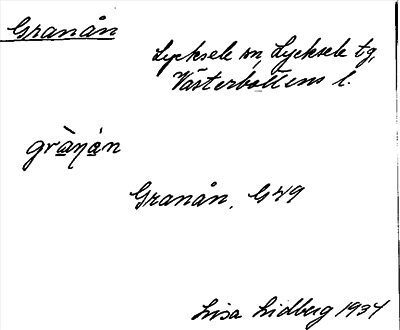 Granån
Lycksele sn, Lycksele tg,
Västerbottens l.
gràŋån
Granån, G49
Lisa Lidberg 1934